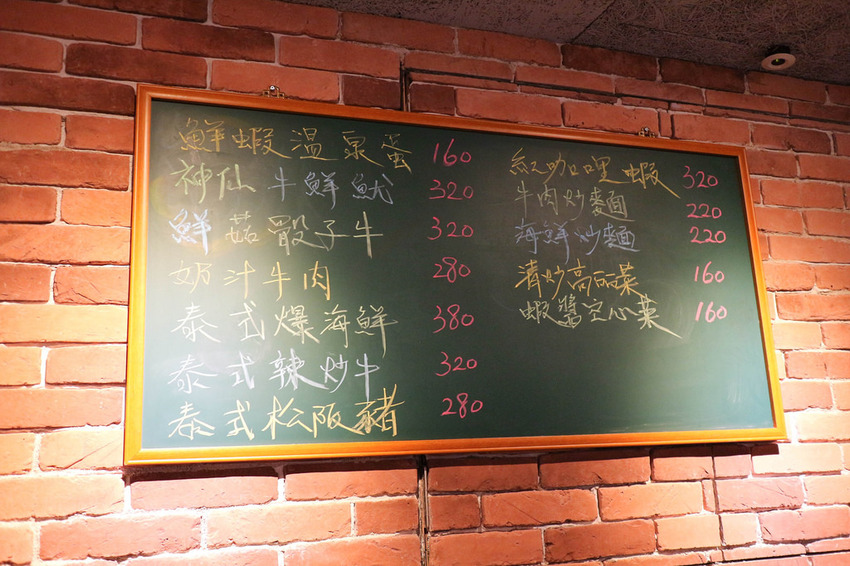 鮮蝦溫泉蛋 160
神仙牛鮮魷 320
鮮菇骰子牛 320
奶汁牛肉 280
泰式爆海鮮 380
泰式辣炒牛 320
泰式松阪豬 280
紅咖哩蝦 320
牛肉炒麵 220
海鮮炒麵 220
清炒高丽菜 160
蝦醬空心菜 160